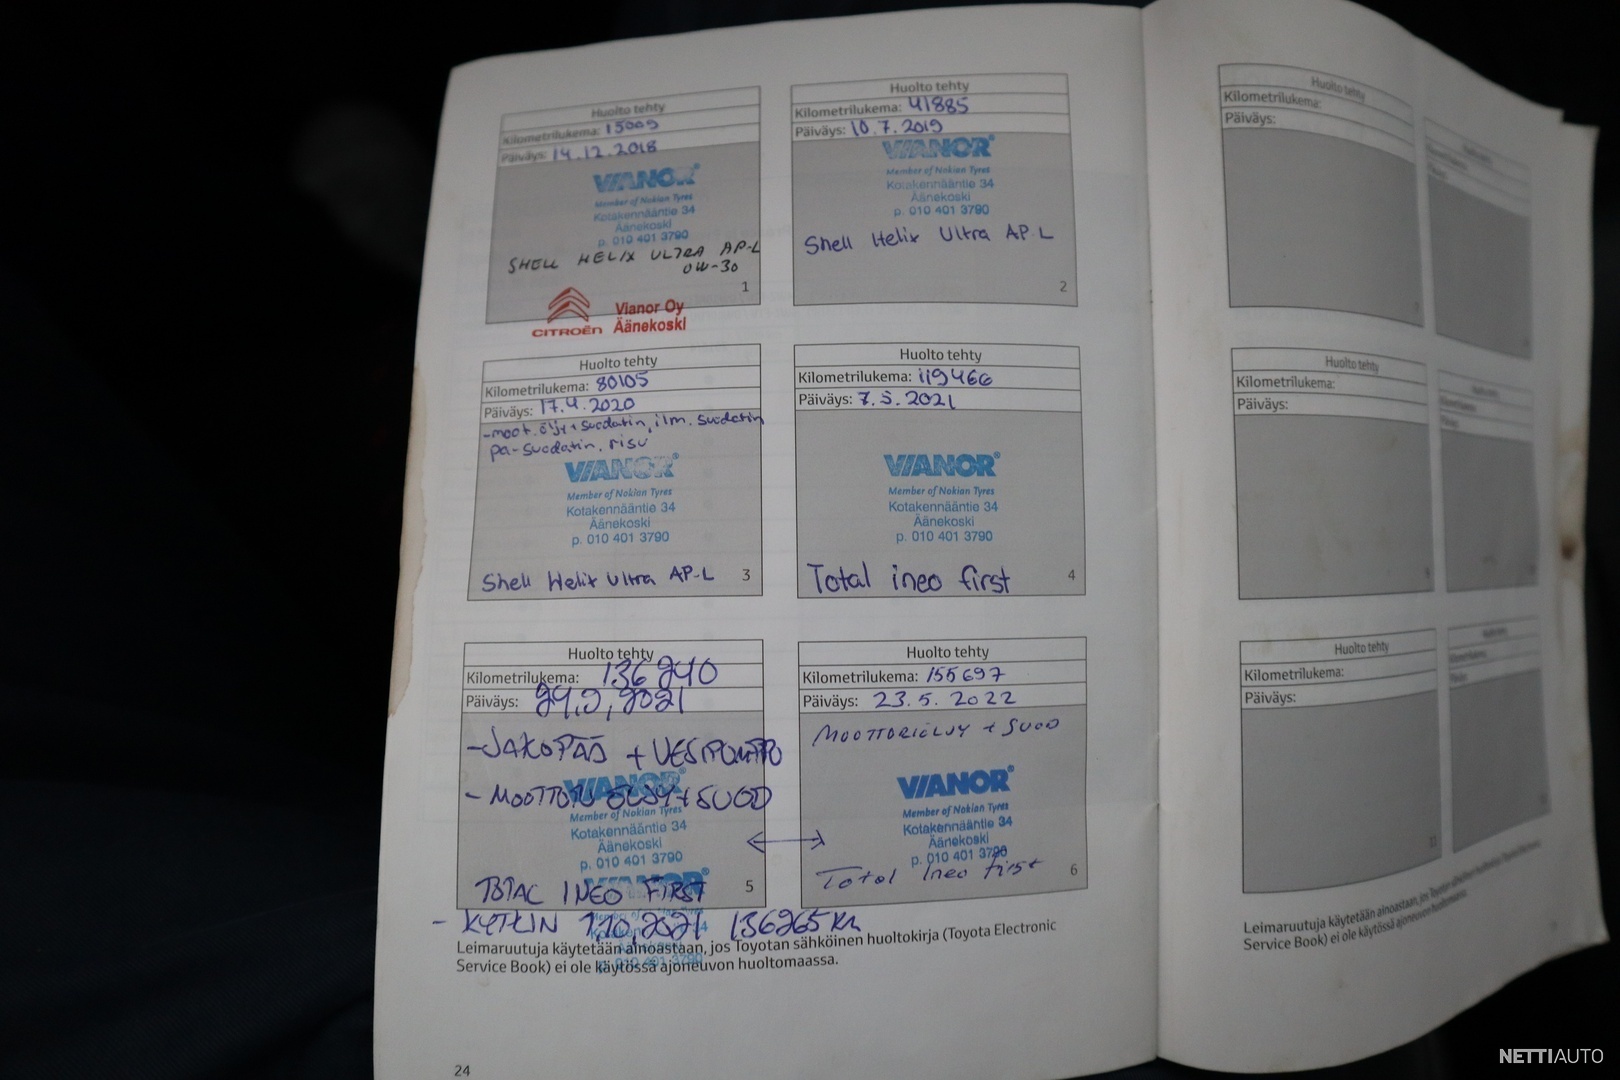 Huolto tehty
Kilometrilukema: 15009
Päiväys: 14.12.2018
VIANOR®
Member of Nokian Tyres
Kotakennääntie 34
Äänekoski
p. 010 401 3790
SHELL HELIX ULTRA AP-L
0W-30
1
CITROËN
Vianor Oy
Äänekoski
Huolto tehty
Kilometrilukema: 41885
Päiväys: 10.7.2019
VIANOR®
Member of Nokian Tyres
Kotakennääntie 34
Äänekoski
p. 010 401 3790
Shell Helix Ultra AP-L
2
Huolto tehty
Kilometrilukema: 80105
Päiväys: 17.4.2020
-moot. öljy+suodatin, ilm. suodatin
pa-suodatin, risu
VIANOR®
Member of Nokian Tyres
Kotakennääntie 34
Äänekoski
p. 010 401 3790
Shell Helix Ultra AP-L
3
Huolto tehty
Kilometrilukema: 119466
Päiväys: 7.5.2021
VIANOR®
Member of Nokian Tyres
Kotakennääntie 34
Äänekoski
p. 010 401 3790
Total ineo first
4
Huolto tehty
Kilometrilukema: 136240
Päiväys: 29.9.2021
-JAKOPÄÄ + VESIPUMPPU
- MOOTTORI ÖLJY + SUOD
VIANOR®
Member of Nokian Tyres
Kotakennääntie 34
Äänekoski
p. 010 401 3790
TOTAL INEO FIRST
5
- KYTKIN 1.10.2021 136265 Km
Huolto tehty
Kilometrilukema: 155697
Päiväys: 23.5.2022
MOOTTORIÖLJY + SUOD
VIANOR®
Member of Nokian Tyres
Kotakennääntie 34
Äänekoski
p. 010 401 3790
Total Ineo first
6
Leimaruutuja käytetään ainoastaan, jos Toyotan sähköinen huoltokirja (Toyota Electronic
Service Book) ei ole käytössä ajoneuvon huoltomaassa.
24
Huolto tehty
Kilometrilukema:
Päiväys:
Huolto tehty
Kilometrilukema:
Päiväys:
Huolto tehty
Kilometrilukema:
Päiväys:
Leimaruutuja käytetään ainoastaan, jos Toyotan sähköinen huoltokirja
Service Book) ei ole käytössä ajoneuvon huoltomaassa.
NETTIAUTO